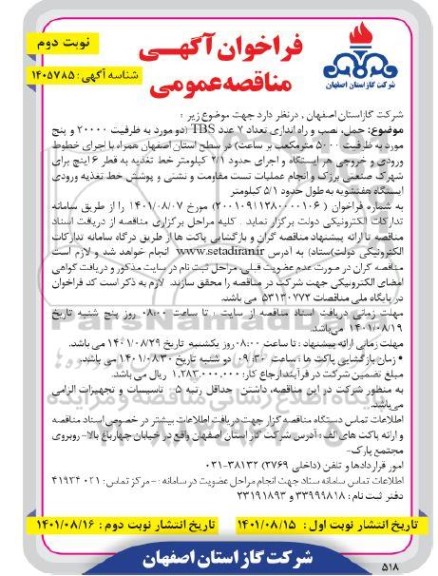 نوبت دوم
شناسه آگهی: ۱۴۰۵۷۸۵
فراخوان آگهی
مناقصه عمومی
شرکت گاز استان اصفهان
شرکت گاز استان اصفهان ، در نظر دارد جهت موضوع زیر :
موضوع: حمل، نصب و راه اندازی تعداد ۷ عدد TBS (دو مورد به ظرفیت ۲۰۰۰۰ و پنج
مورد به ظرفیت ۵۰۰۰ مترمکعب بر ساعت) در سطح استان اصفهان همراه با اجرای خطوط
ورودی و خروجی هر ایستگاه و اجرای حدود ۲/۱ کیلومتر خط تغذیه به قطر ۶ اینچ برای
شهرک صنعتی برزک و انجام عملیات تست مقاومت و نشتی و پوشش خط تغذیه ورودی
ایستگاه هفتشویه به طول حدود ۵/۱ کیلومتر
به شماره فراخوان ( ۲۰۰۱۰۹۱۱۲۸۰۰۰۱۰۶) مورخ ۱۴۰۱/۰۸/۰۷ را از طریق سامانه
تدارکات الکترونیکی دولت برگزار نماید . کلیه مراحل برگزاری مناقصه از دریافت اسناد
مناقصه تا ارائه پیشنهاد مناقصه گران و بازگشایی پاکت ها از طریق درگاه سامانه تدارکات
الکترونیکی دولت(ستاد) به آدرس www.setadiran.ir انجام خواهد شد و لازم است
مناقصه گران در صورت عدم عضویت قبلی، مراحل ثبت نام در سایت مذکور و دریافت گواهی
امضای الکترونیکی جهت شرکت در مناقصه را محقق سازند. لازم به ذکر است کد فراخوان
در پایگاه ملی مناقصات ۵۳۱۳۰۷۷۲ می باشد.
مهلت زمانی دریافت اسناد مناقصه از سایت : تا ساعت ۰۸:۰۰ روز پنج شنبه تاریخ
۱۴۰۱/۰۸/۱۹ می‌باشد.
مهلت زمانی ارائه پیشنهاد : تا ساعت ۰۸:۰۰ روز یکشنبه تاریخ ۱۴۰۱/۰۸/۲۹ می باشد.
• زمان بازگشایی پاکت ها : ساعت ۰۹:۳۰ دو شنبه تاریخ ۱۴۰۱/۰۸/۳۰ می باشد.
مبلغ تضمین شرکت در فرآیند ارجاع کار: ۱.۲۸۳.۰۰۰.۰۰۰ ریال می باشد.
به منظور شرکت در این مناقصه، داشتن حداقل رتبه ۵ تاسیسات و تجهیزات الزامی
می‌باشد.
اطلاعات تماس دستگاه مناقصه گزار جهت دریافت اطلاعات بیشتر در خصوص اسناد مناقصه
و ارائه پاکت های الف : آدرس شرکت گاز استان اصفهان واقع در خیابان چهارباغ بالا- روبروی
مجتمع پارک-
امور قراردادها و تلفن (داخلی ۲۷۶۹) ۳۸۱۳۲-۰۳۱
اطلاعات تماس سامانه ستاد جهت انجام مراحل عضویت در سامانه : - مرکز تماس: ۰۲۱-۴۱۹۳۴
دفتر ثبت نام : ۳۳۹۹۹۸۱۸ و ۲۳۱۹۱۸۹۳
تاریخ انتشار نوبت اول : ۱۴۰۱/۰۸/۱۵ تاریخ انتشار نوبت دوم : ۱۴۰۱/۰۸/۱۶
شرکت گاز استان اصفهان
۵۱۸